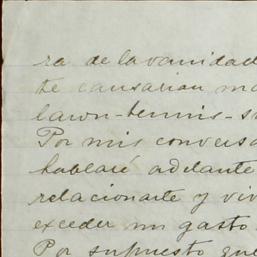 ra de la vanidad
te causarían
lawn-tennis-
Por mis conversa
hablaré adelante
relacionarte y viv
exceder un gasto
Por supuesto que